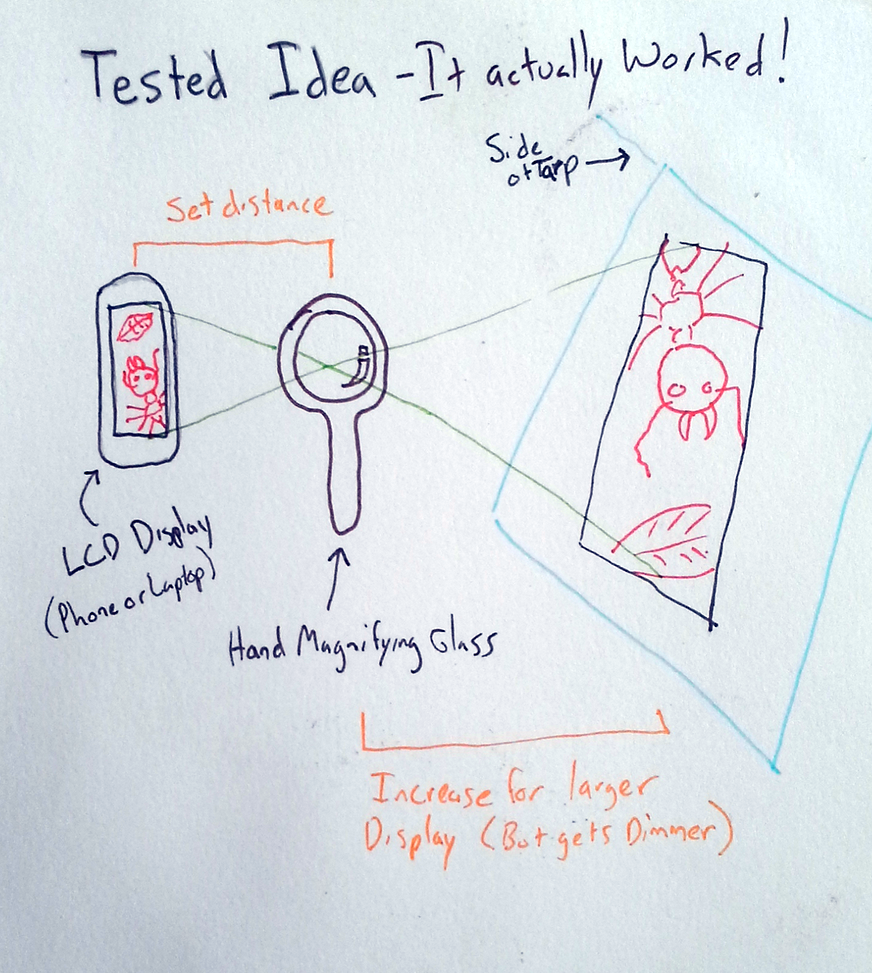 Tested Idea - It actually Worked!
Side
of Tarp
Set distance
LCD Display
(Phone or Laptop)
Hand Magnifying Glass
Increase for larger
Display (But gets Dimmer)